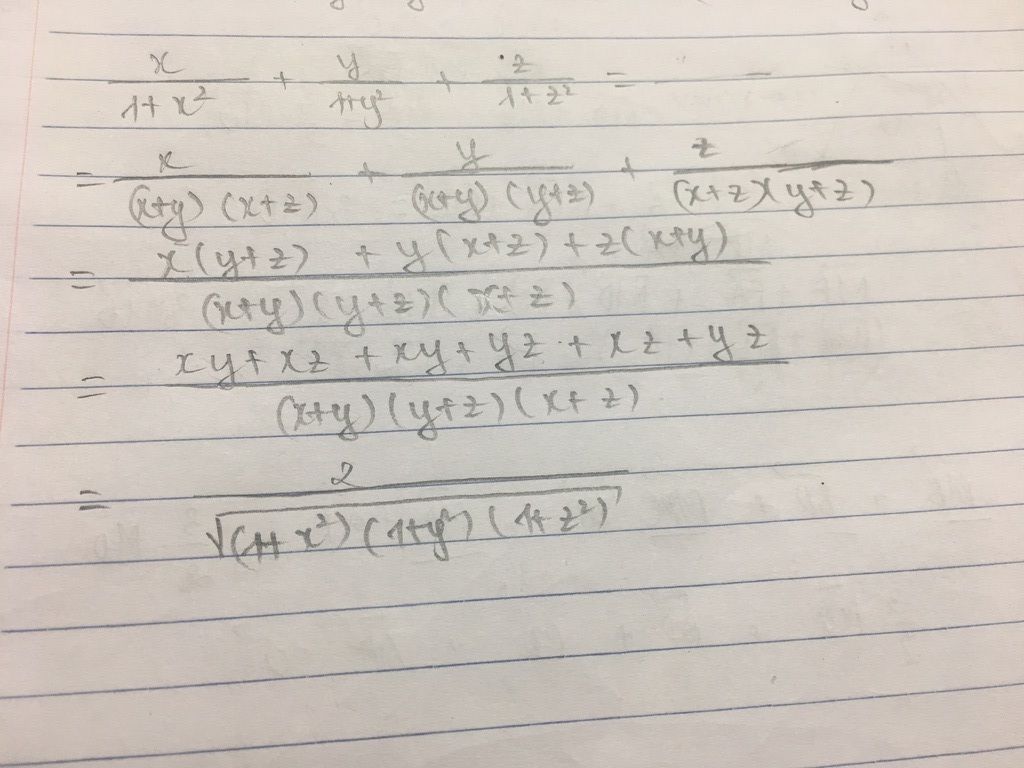 x/(1+x²) + y/(1+y²) + z/(1+z²) =
= x/((x+y)(x+z)) + y/((x+y)(y+z)) + z/((x+z)(y+z))
= (x(y+z) + y(x+z) + z(x+y))/((x+y)(y+z)(x+z))
= (xy+xz+xy+yz+xz+yz)/((x+y)(y+z)(x+z))
= 2/√((1+x²)(1+y²)(1+z²))